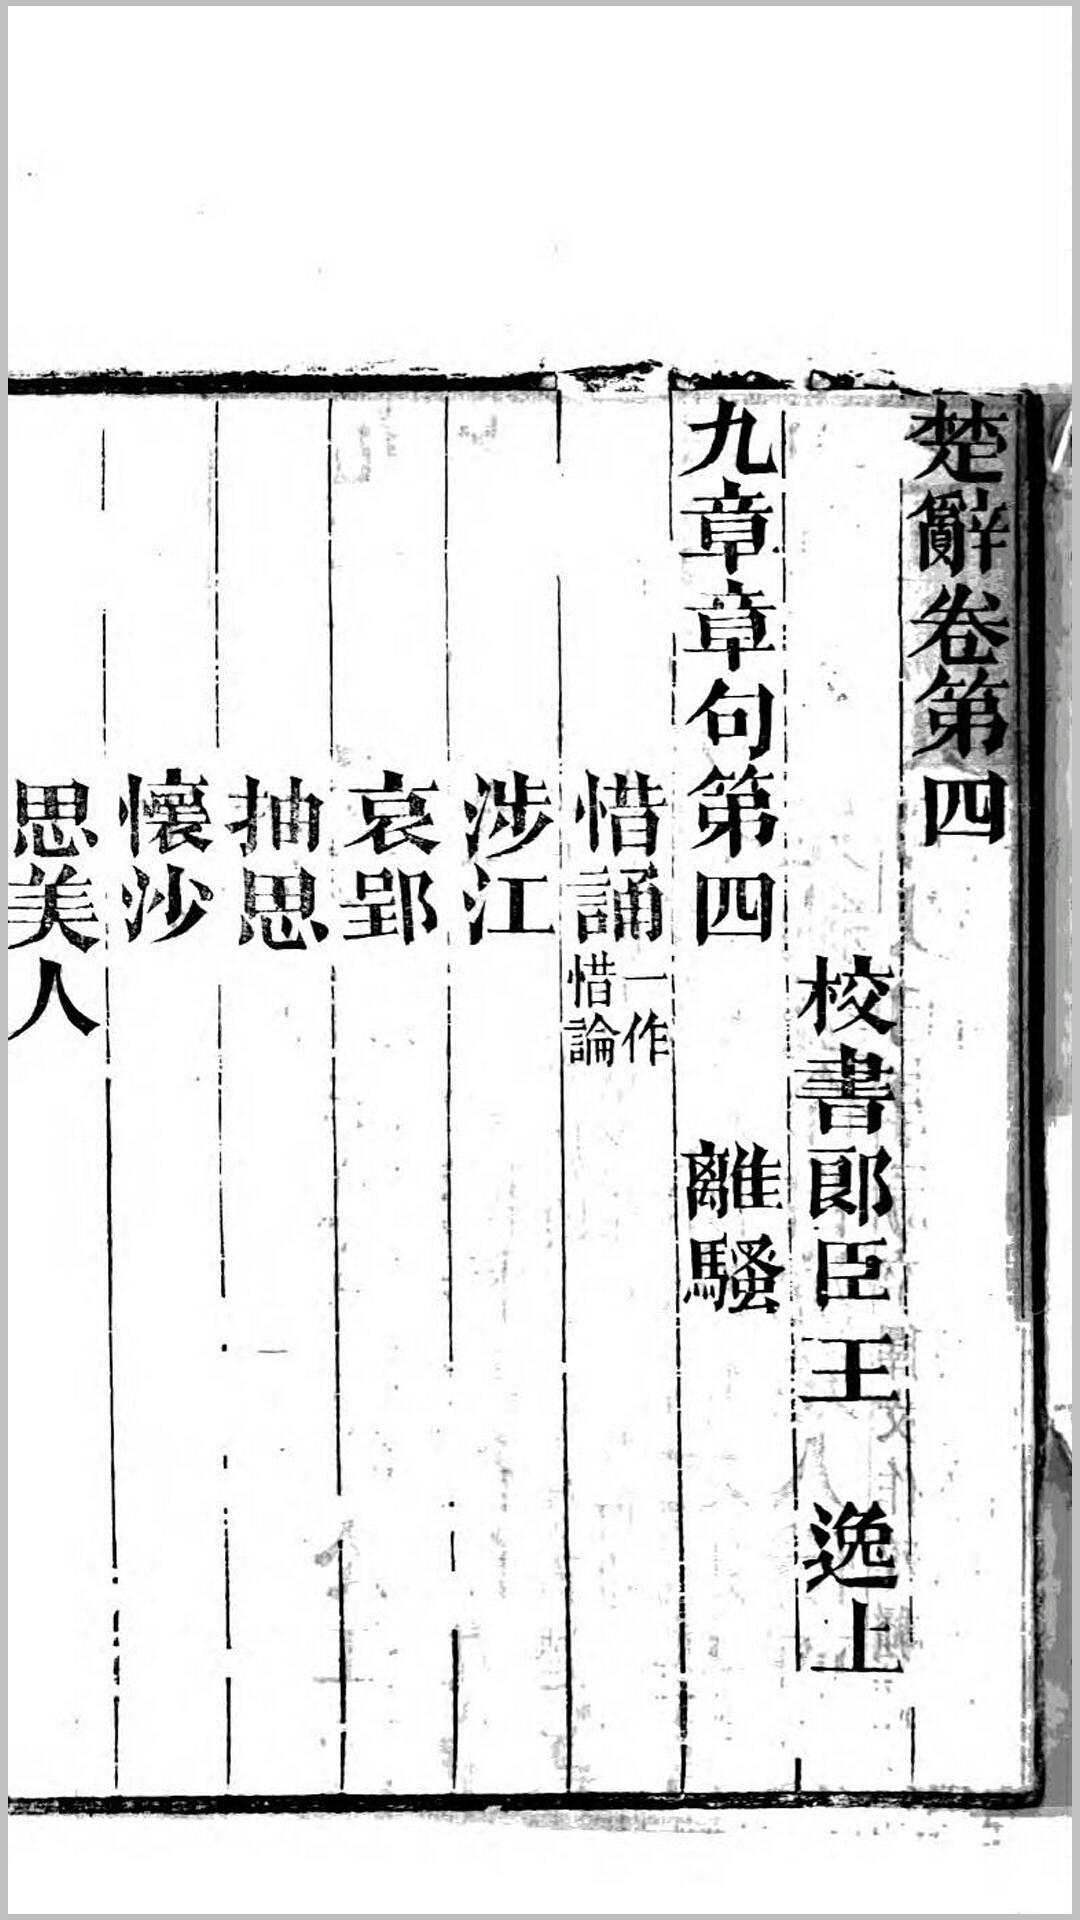 楚辭卷第四
校書郎臣王　逸上
九章章句第四　離騷
惜誦一作惜論
涉江
哀郢
抽思
懷沙
思美人